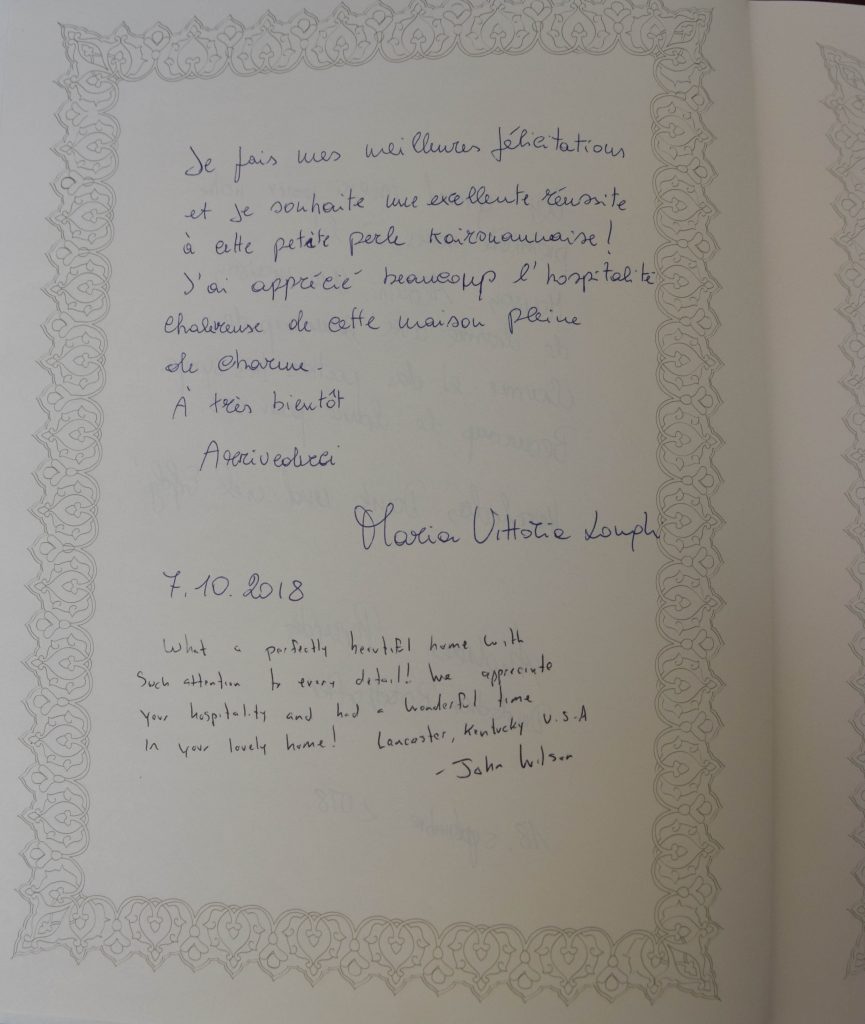 Je fais mes meilleures félicitations
et je souhaite une excellente réussite
à cette petite perle kairouannaise !
J'ai apprécié beaucoup l'hospitalité
chalereuse de cette maison pleine
de charme.
À très bientôt
Arrivederci
Maria Vittoria Longhi
7.10.2018
What a perfectly beautiful home with
Such attention to every detail! We appreciate
your hospitality and had a wonderful time
In your lovely home! Lancaster, Kentucky U.S.A
- John Wilson